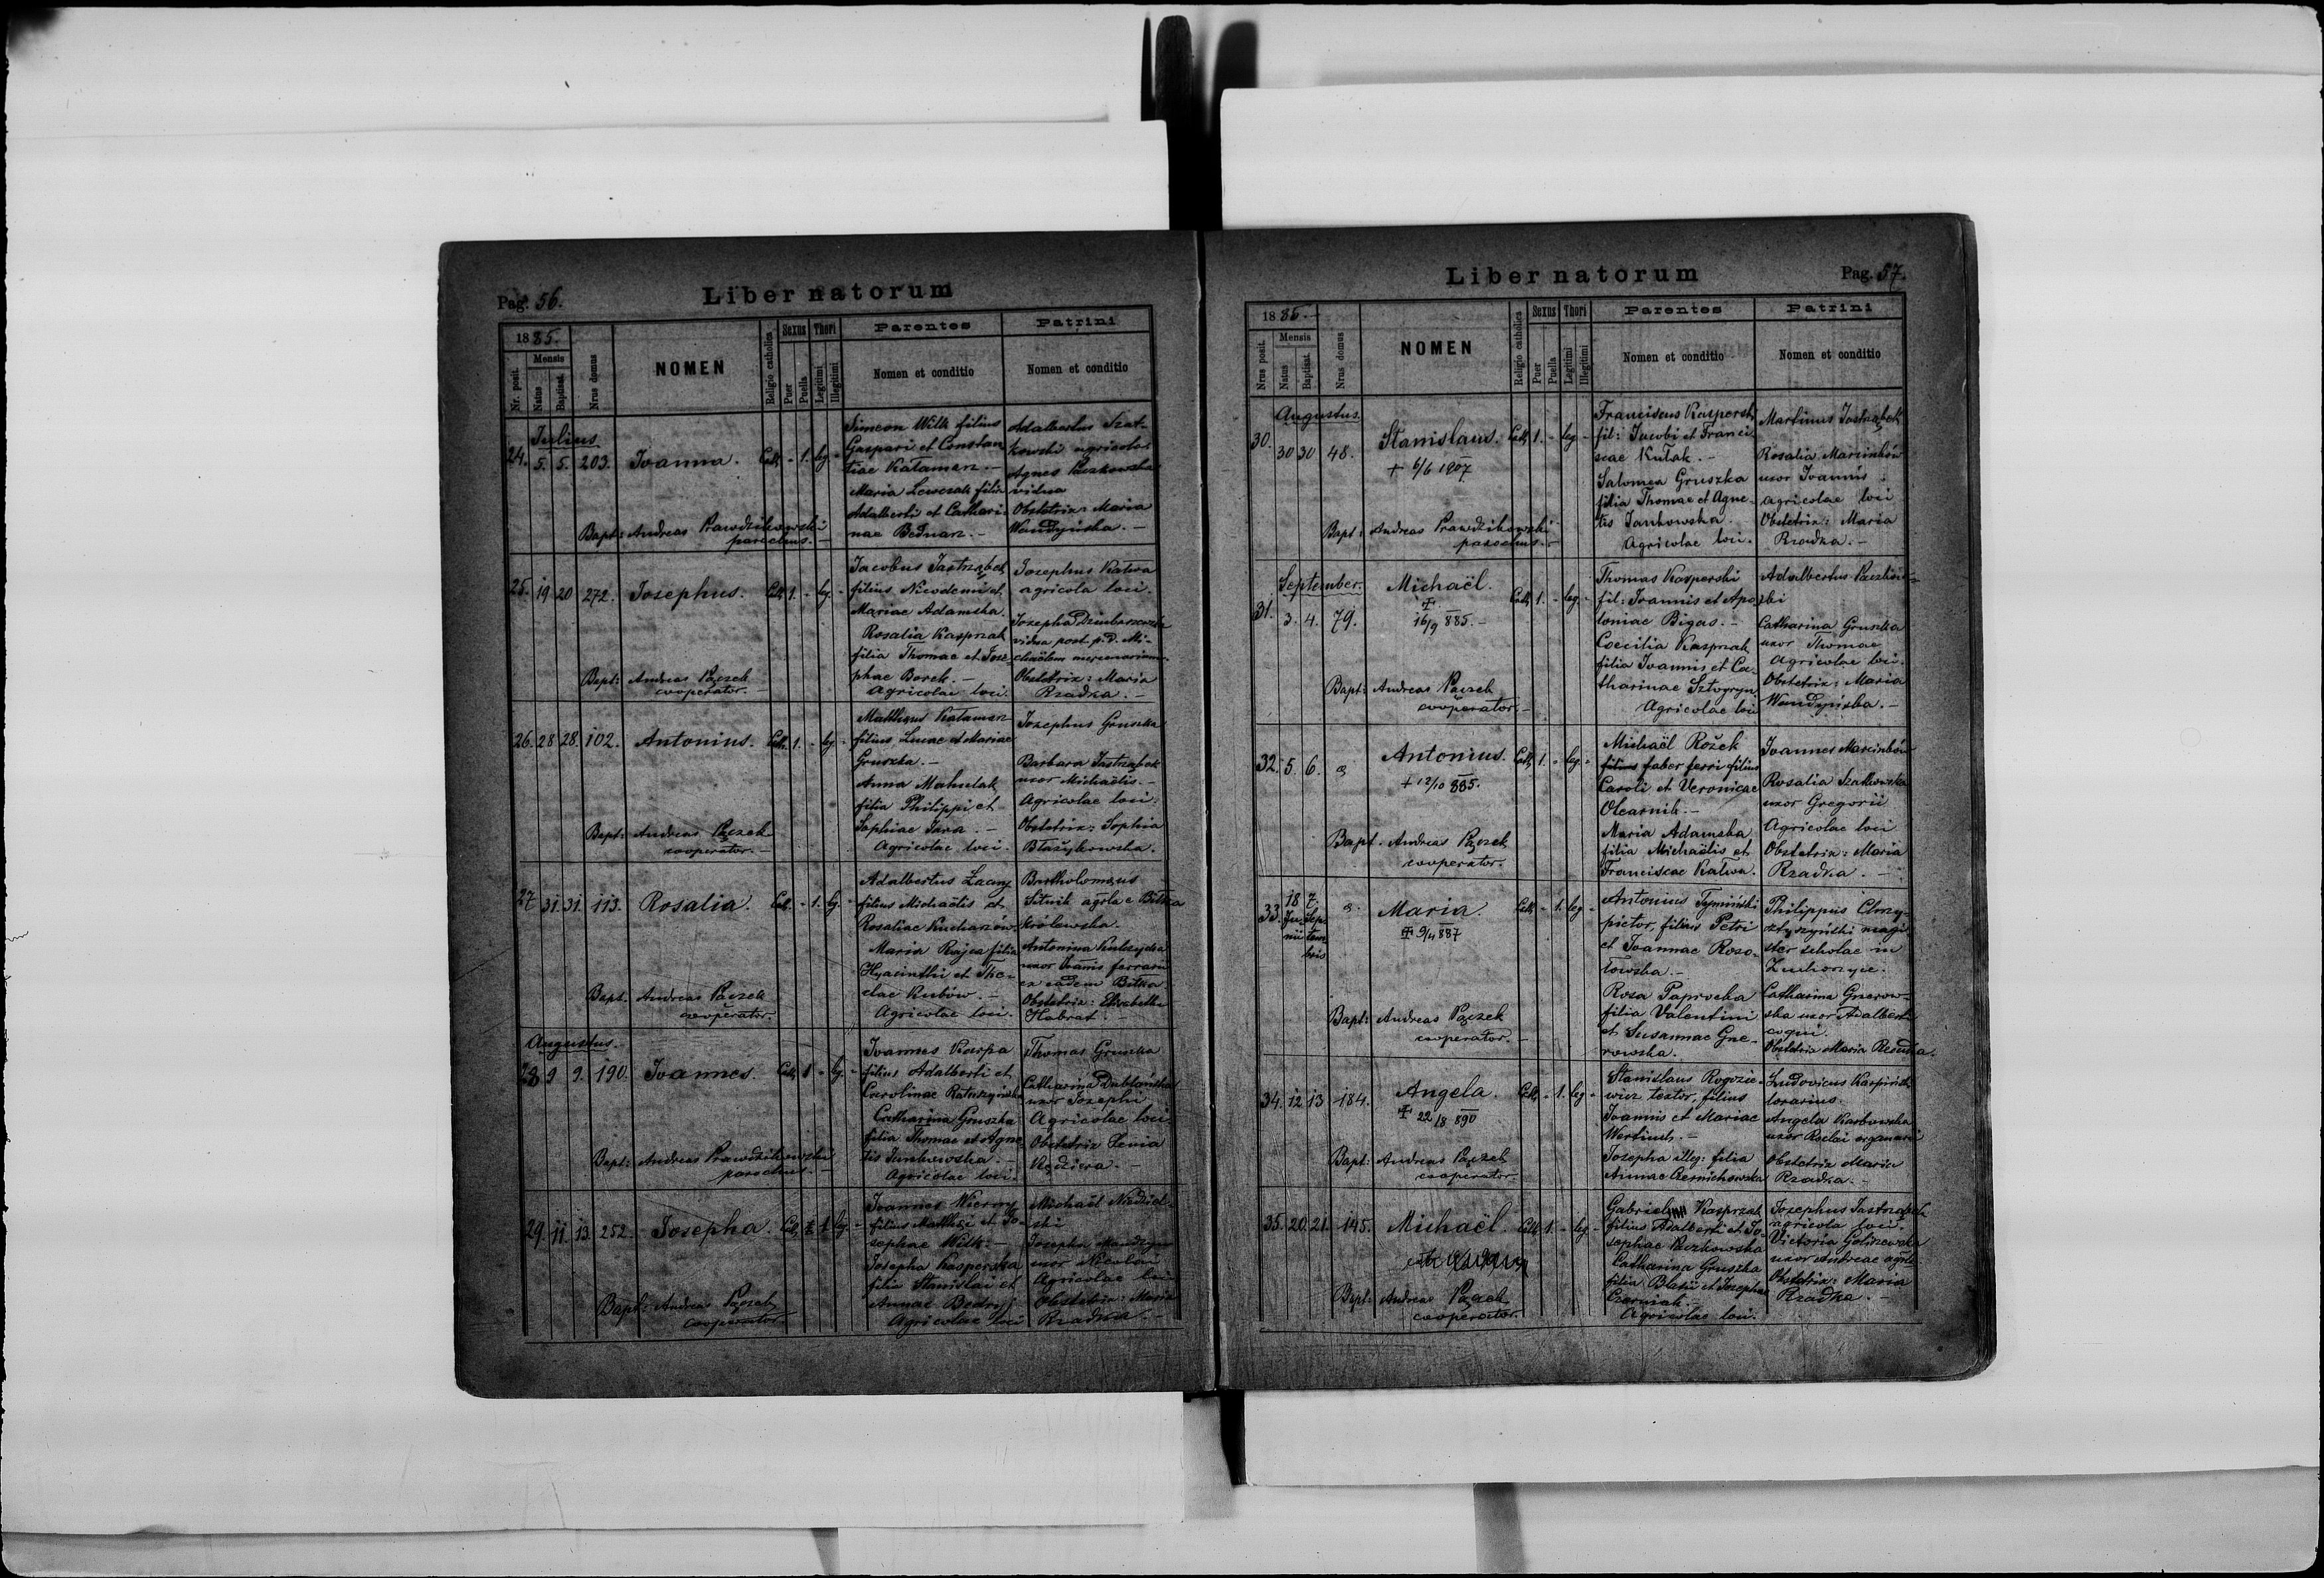 Pag. 56.
Liber natorum
1885.
Nr. posit.
Mensis
Natus
Baptisat.
Nrus domus
NOMEN
Religio catholica
Sexus
Puer
Puella
Thori
Legitimi
Illegitimi
Parentes
Nomen et conditio
Patrini
Nomen et conditio
Julius
24. 5. 5. 203. Joanna. Cath. - 1. leg. -
Simeon Wilk filius
Gaspari et Constan
tiae Kataman. -
Maria Lewczak filia
Adalberti et Cathari-
nae Bednarz. -
Adalbertus Szat-
kowski agricola
Agnes Paczkowska
vidua
Obstetrix: Maria
Wendyńska. -
Bapt: Andreas Prawdzikowski
parochus. -
25. 19 20 272. Josephus. Cath. 1. - leg. -
Jacobus Jastrząbek
filius Nicodemi et
Mariae Adamska.
Rosalia Kasprzak
filia Thomae et Jose-
phae Borek. -
Agricolae loci.
Josephus Kalwa
agricola loci.
Josepha
vidua post p.d. Mi-
chaëlem mercenarium.
Obstetrix: Maria
Rzadka. -
Bapt: Andreas Pączek
cooperator. -
26. 28 28. 102. Antonius. Cath. 1. - leg. -
Matthaeus Kataman
filius Lucae et Mariae
Gruszka. -
Anna Mahulak
filia Philippi et
Sophiae Jara. -
Agricolae loci.
Josephus Gruszka
Barbara Jastrząbek
uxor Michaëlis. -
Agricolae loci.
Obstetrix: Sophia
Błażykowska.
Bapt: Andreas Pączek
cooperator. -
27 31. 31. 113. Rosalia. Cath. - 1. leg. -
Adalbertus Łacny
filius Michaëlis et
Rosaliae Kucharzów.
Maria Rajca filia
Hyacinthi et The-
clae Kubów. -
Agricolae loci.
Bartholomaeus
Sitnik agrla e Bitka
Królewska.
Antonina
uxor Joannis ferrarii
ex eadem Bitka.
Obstetrix: Elisabetha
Habrat. -
Bapt. Andreas Pączek
cooperator.
Augustus.
28 9 9. 190. Joannes. Cath. 1 - leg. -
Joannes Karpa
filius Adalberti et
Carolinae
Catharina Gruszka
filia Thomae et Agne
tis Jankowska. -
Agricolae loci.
Thomas Gruszka
Catharina Dublańska
uxor Josephi
Agricolae loci
Obstetrix Xenia
Kędziera. -
Bapt: Andreas Prawdzikowski
parochus. -
29. 11. 13. 252. Josepha. Cath. 1 leg. -
Joannes
filius Matthaei et Jo-
sephae Wilk. -
Josepha Kasperska
filia Stanislai et
Annae Bedryj
Agricolae loci
Michaël
ski
Josepha
uxor Nicolai
Agricolae loci
Obstetrix: Maria
Rzadka. -
Bapt: Andreas Pączek
cooperator
Liber natorum
Pag. 57.
1885. -
Nrus posit.
Mensis
Natus
Baptisat.
Nrus domus
NOMEN
Religio catholica
Sexus
Puer
Puella
Thori
Legitimi
Illegitimi
Parentes
Nomen et conditio
Patrini
Nomen et conditio
Augustus
30. 30 30 48. Stanislaus. Cath. 1. - leg -
+ 6/6 1907
Franciscus Kaspersk
fil: Jacobi et Franci-
scae Kułak. -
Salomea Gruszka
filia Thomae et Agne-
tis Jankowska.
Agricolae loci.
Martinus Jastrząbek
Rosalia Marcinków
uxor Joannis
agricolae loci
Obstetrix: Maria
Rzadka. -
Bapt: Andreas Prawdzikowski
parochus. -
September.
31. 3. 4. 79. Michaël. Cath. 1. - leg. -
16/9 885. -
Thomas Kasperski
fil: Joannis et Apo-
loniae Bigas. -
Coecilia Kasprzak
filia Joannis et Ca-
tharinae Sztogryn
Agricolae loci
Adalbertus
Catharina Gruszka
uxor Thomae
Agricolae loci.
Obstetrix: Maria
Wendyńska. -
Bapt: Andreas Pączek
cooperator. -
32. 5. 6. a Antonius. Cath. 1. - leg. -
+ 12/10 885.
Michaël Rożek
filius faber ferri filius
Caroli et Veronicae
Olearnik. -
Maria Adamska
filia Michaëlis et
Franciscae Kalwa.
Joannes Marcinków
Rosalia Szatkowska
uxor Gregorii
Agricolae loci
Obstetrix: Maria
Rzadka. -
Bapt. Andreas Pączek
cooperator.
33. 18 Junii 7. Septembris a. Maria. Cath. - 1. leg -
9/4 887
Antonius Tymiński
pictor, filius Petri
et Joannae Roso-
łowska. -
Rosa Paprocka
filia Valentini
et Susannae Gne-
rowska.
Philippus Chrzy-
magi-
ster scholae in
Zuchorzyce.
Catharina Gnerow-
ska uxor Adalberti
coqui.
Obstetrix Maria Rzadka.
Bapt: Andreas Pączek
cooperator. -
34. 12 13 184. Angela. Cath. - 1. leg -
22/8 890
Stanislaus Rogozie-
wicz textor, filius
Joannis et Mariae
Wertiuch. -
Josepha illeg: filia
Annae Czernichowska
Ludovicus Karpiński
lorarius.
Angela Karbowska
uxor organarii
Obstetrix Maria
Rzadka. -
Bapt: Andreas Pączek
cooperator -
35. 20. 21. 145. Michaël. Cath. 1. - leg -
Gabriel Kasprzak
filius Adalberti et Jo-
sephae Paczkowska
Catharina Gruszka
filia Blasii et Josephae
Czerniak. -
Agricolae loci.
Josephus Jastrząbek
agricola loci.
Victoria Goliszewska
uxor Andreae agrlae
Obstetrix: Maria
Rzadka. -
Bapt: Andreas Pączek
cooperator.